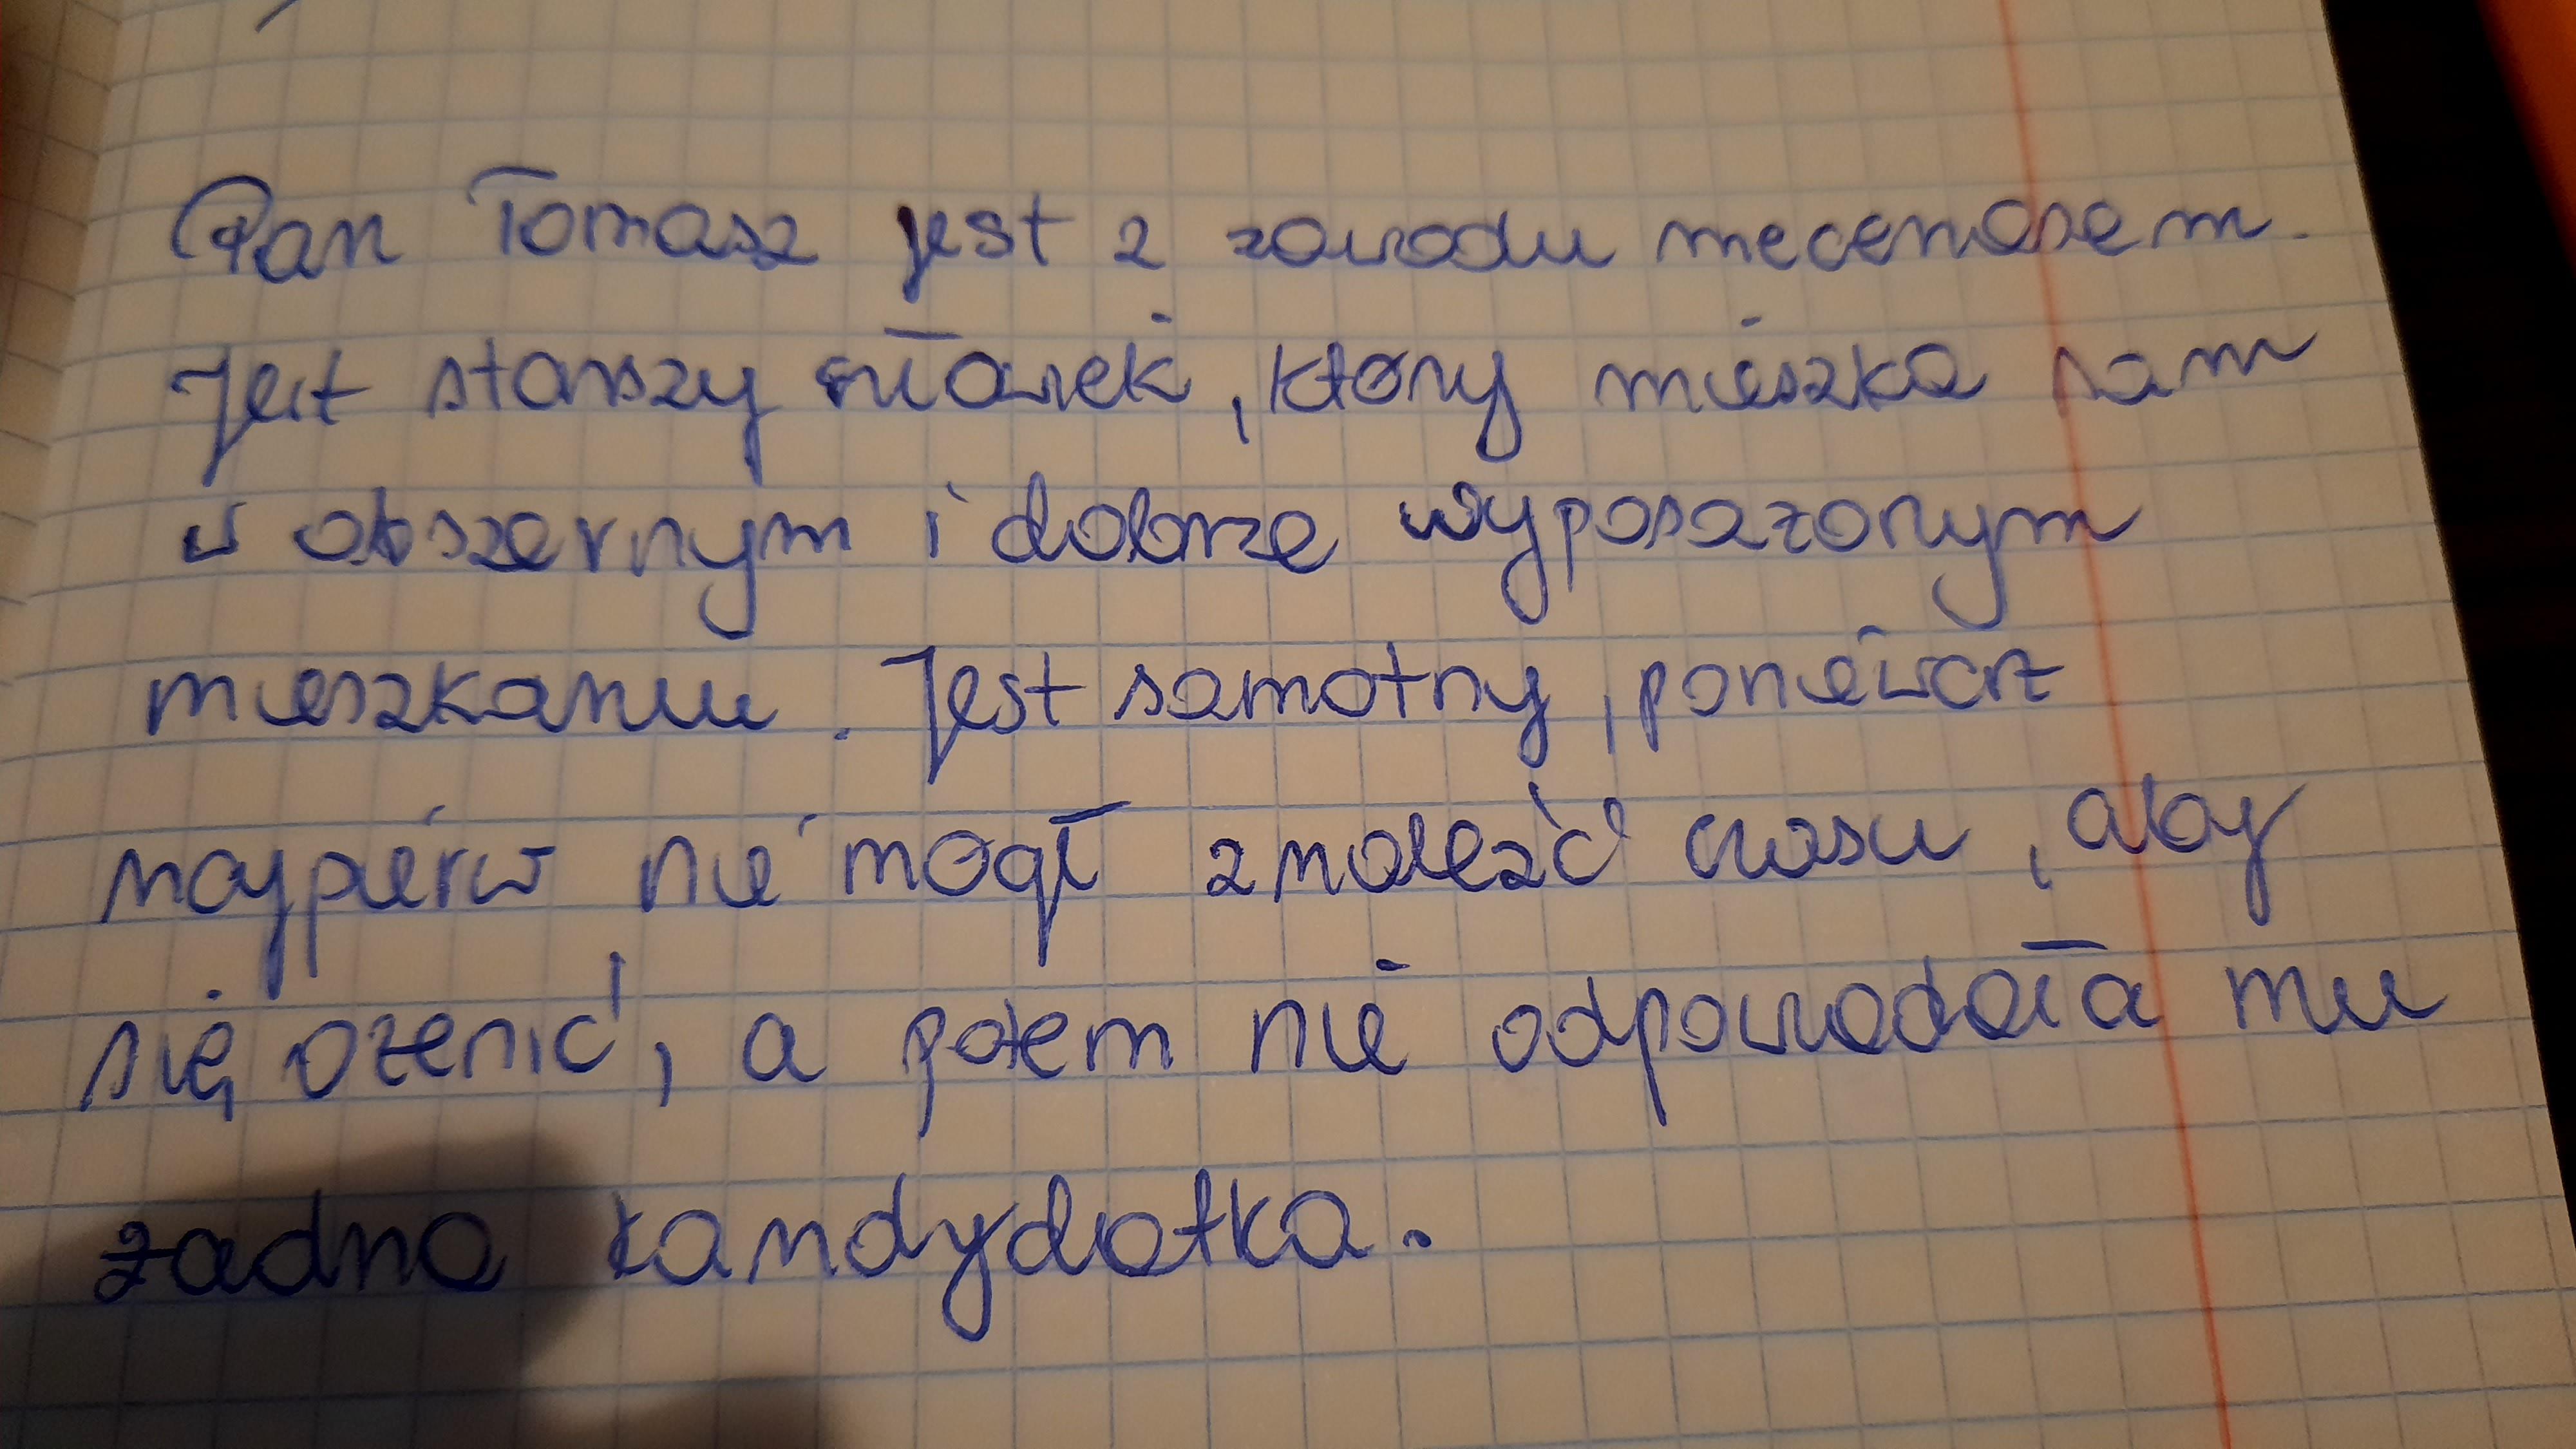 Pan Tomasz jest z zawodu mecenasem.
Jest starszy człowiek, który mieszka sam
w obszernym i dobrze wyposażonym
mieszkaniu. Jest samotny, ponieważ
najpierw nie mógł znaleźć czasu, aby
się ożenić, a potem nie odpowiadała mu
żadna kandydatka.